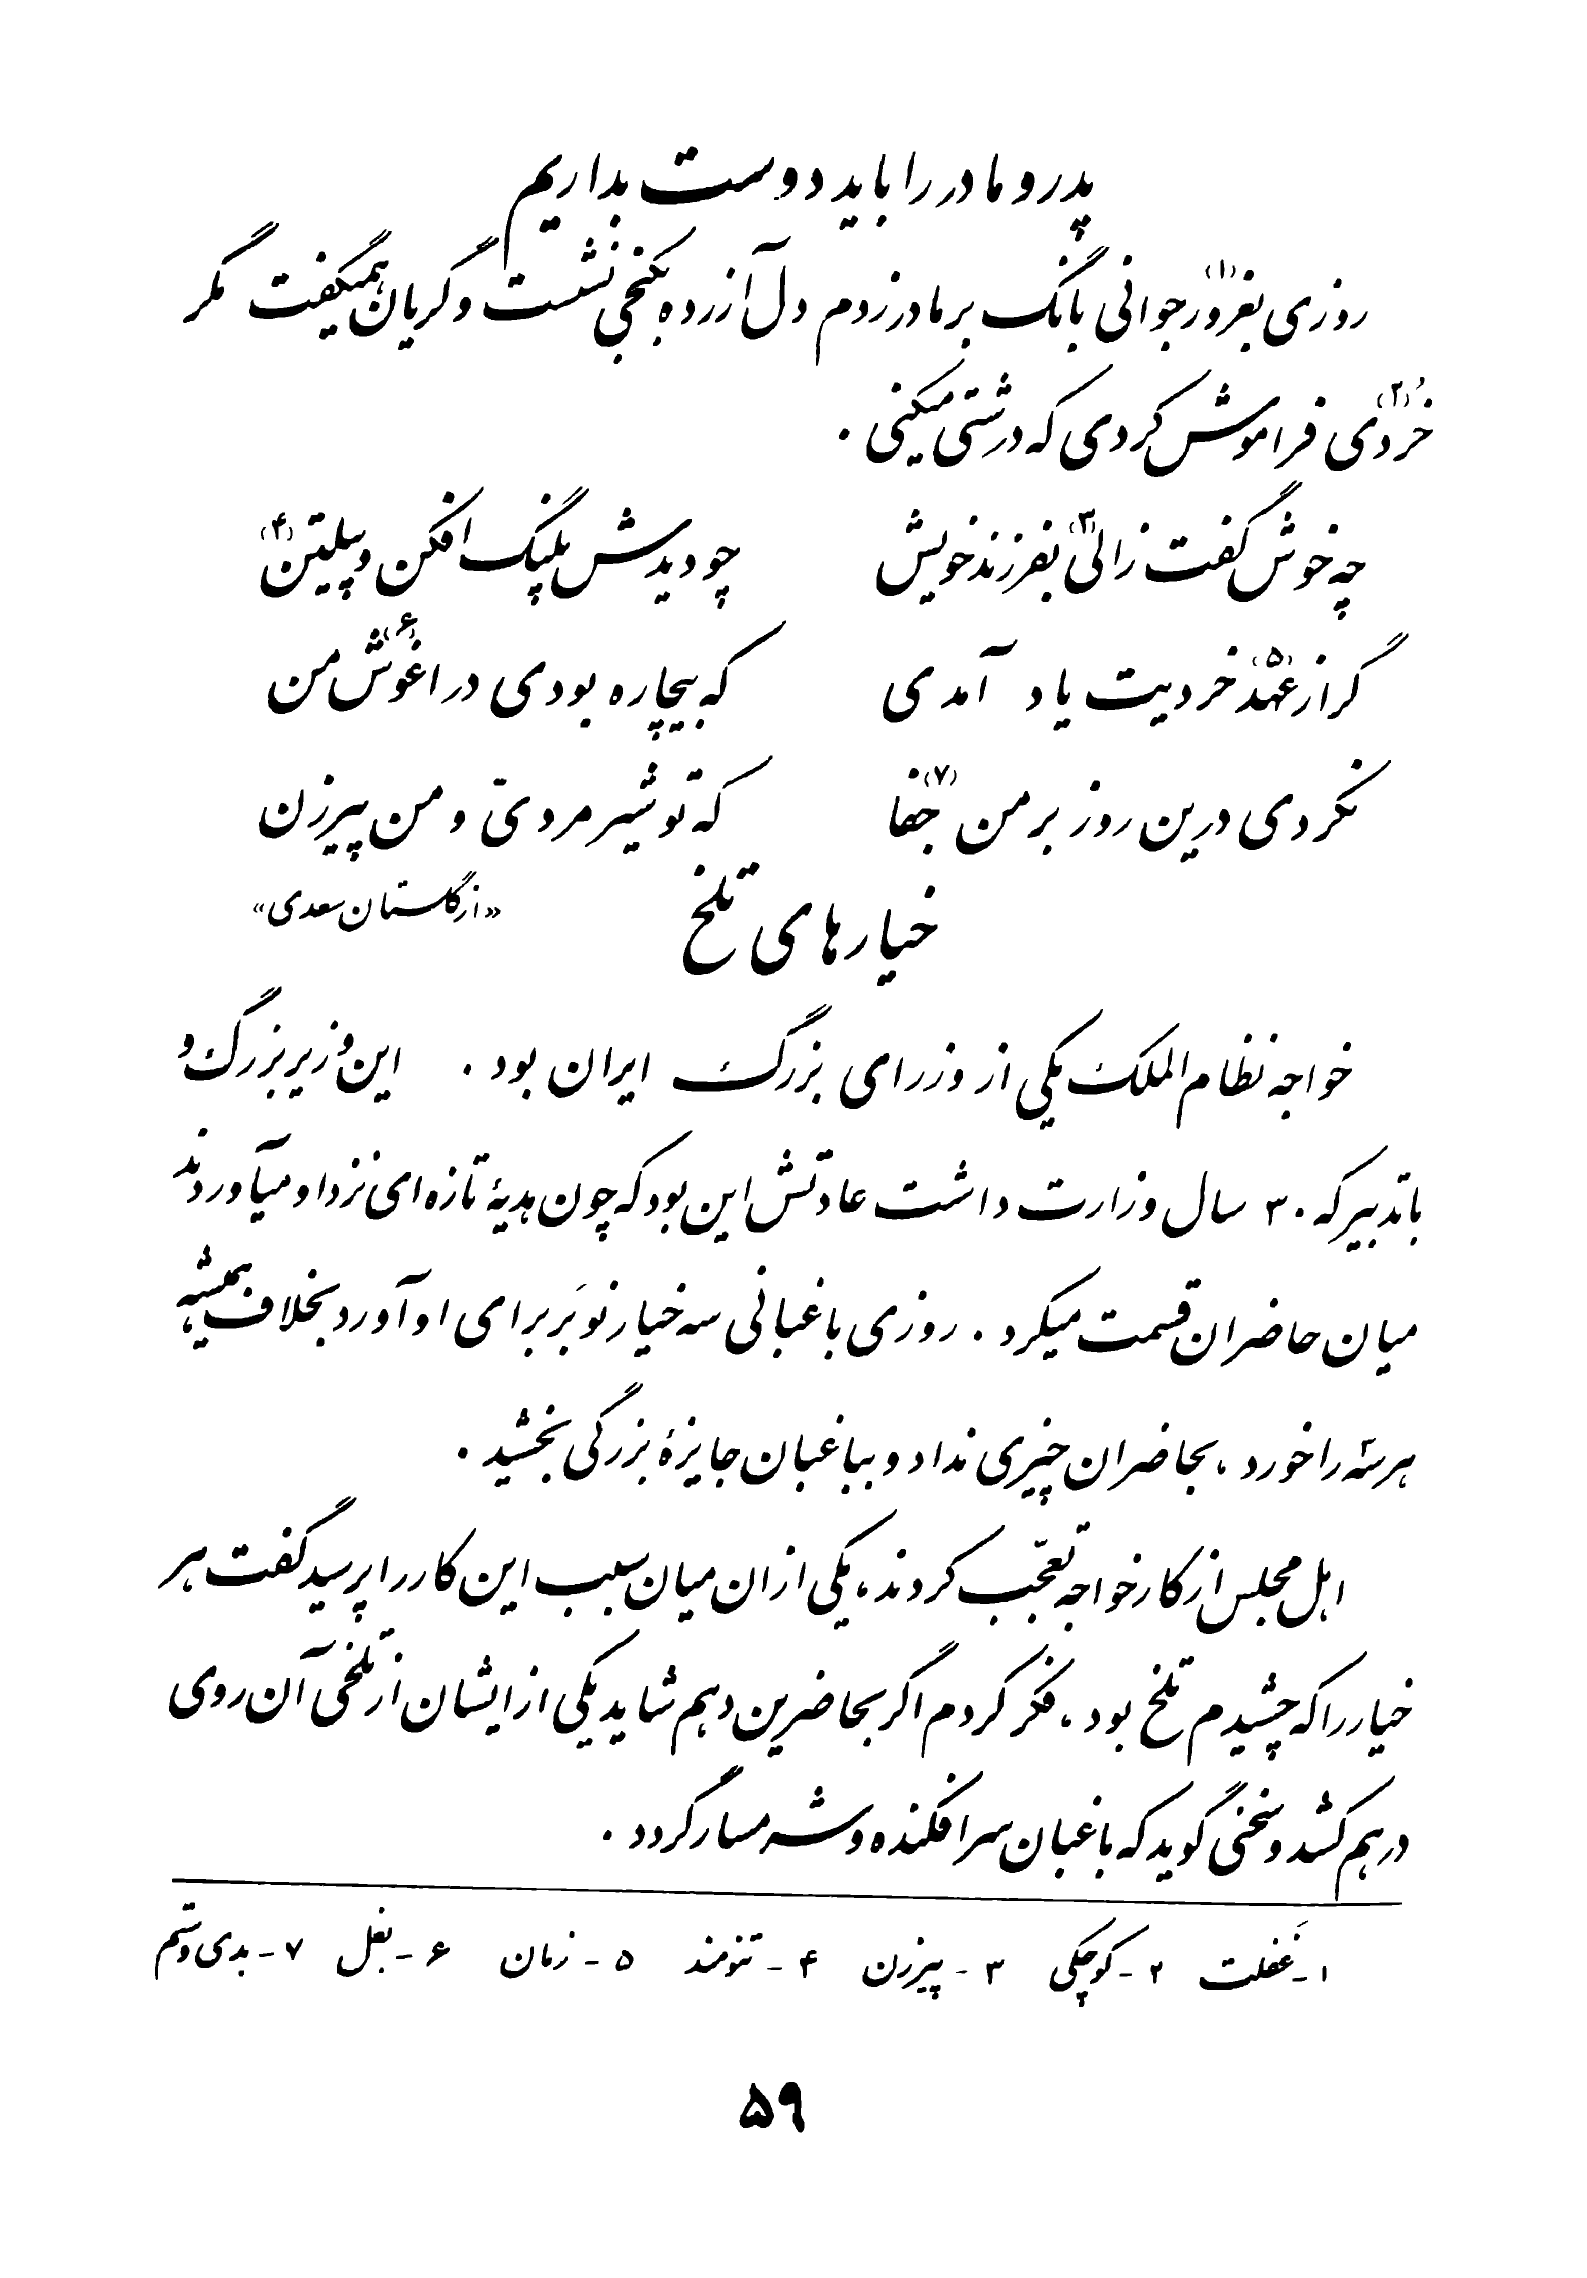 پدر و مادر را باید دوست بداریم
روزی بغرور(۱) جوانی بانگ بر مادر زدم دل آزرده بکنجی نشست و گریان همیگفت مگر
خُردی(۲) فراموش کردی که درشتی میکنی .
چه خوش گفت زالی(۳) بفرزند خویش چو دیدش پلنگ افکن و پیلتن(۴)
گر از عهد(۵) خردیت یاد آمدی که بیچاره بودی در اغوش(۶) من
نکردی درین روز بر من جفا(۷) که تو شیر مردی و من پیرزن
«از گلستان سعدی»
خیارهای تلخ
خواجه نظام الملک یکی از وزرای بزرگ ایران بود . این وزیر بزرگ و
باتدبیر که ۳۰ سال وزارت داشت عادتش این بود که چون هدیهٔ تازه ای نزد او میآوردند
میان حاضران قسمت میکرد . روزی باغبانی سه خیار نوبَر برای او آورد بخلاف همیشه
هر سه را خورد ، بحاضران چیزی نداد و بباغبان جایزهٔ بزرگی بخشید .
اهل مجلس از کار خواجه تعجّب کردند ، یکی ازان میان سبب این کار را پرسید گفت هر
خیار را که چشیدم تلخ بود ، فکر کردم اگر بحاضرین دهم شاید یکی از ایشان از تلخی آن روی
درهم کشد و سخنی گوید که باغبان سرافکنده و شرمسار گردد .
۱ - غَفلت ۲ - کوچکی ۳ - پیرزن ۴ - تنومند ۵ - زمان ۶ - بغل ۷ - بدی و ستم
۵۹